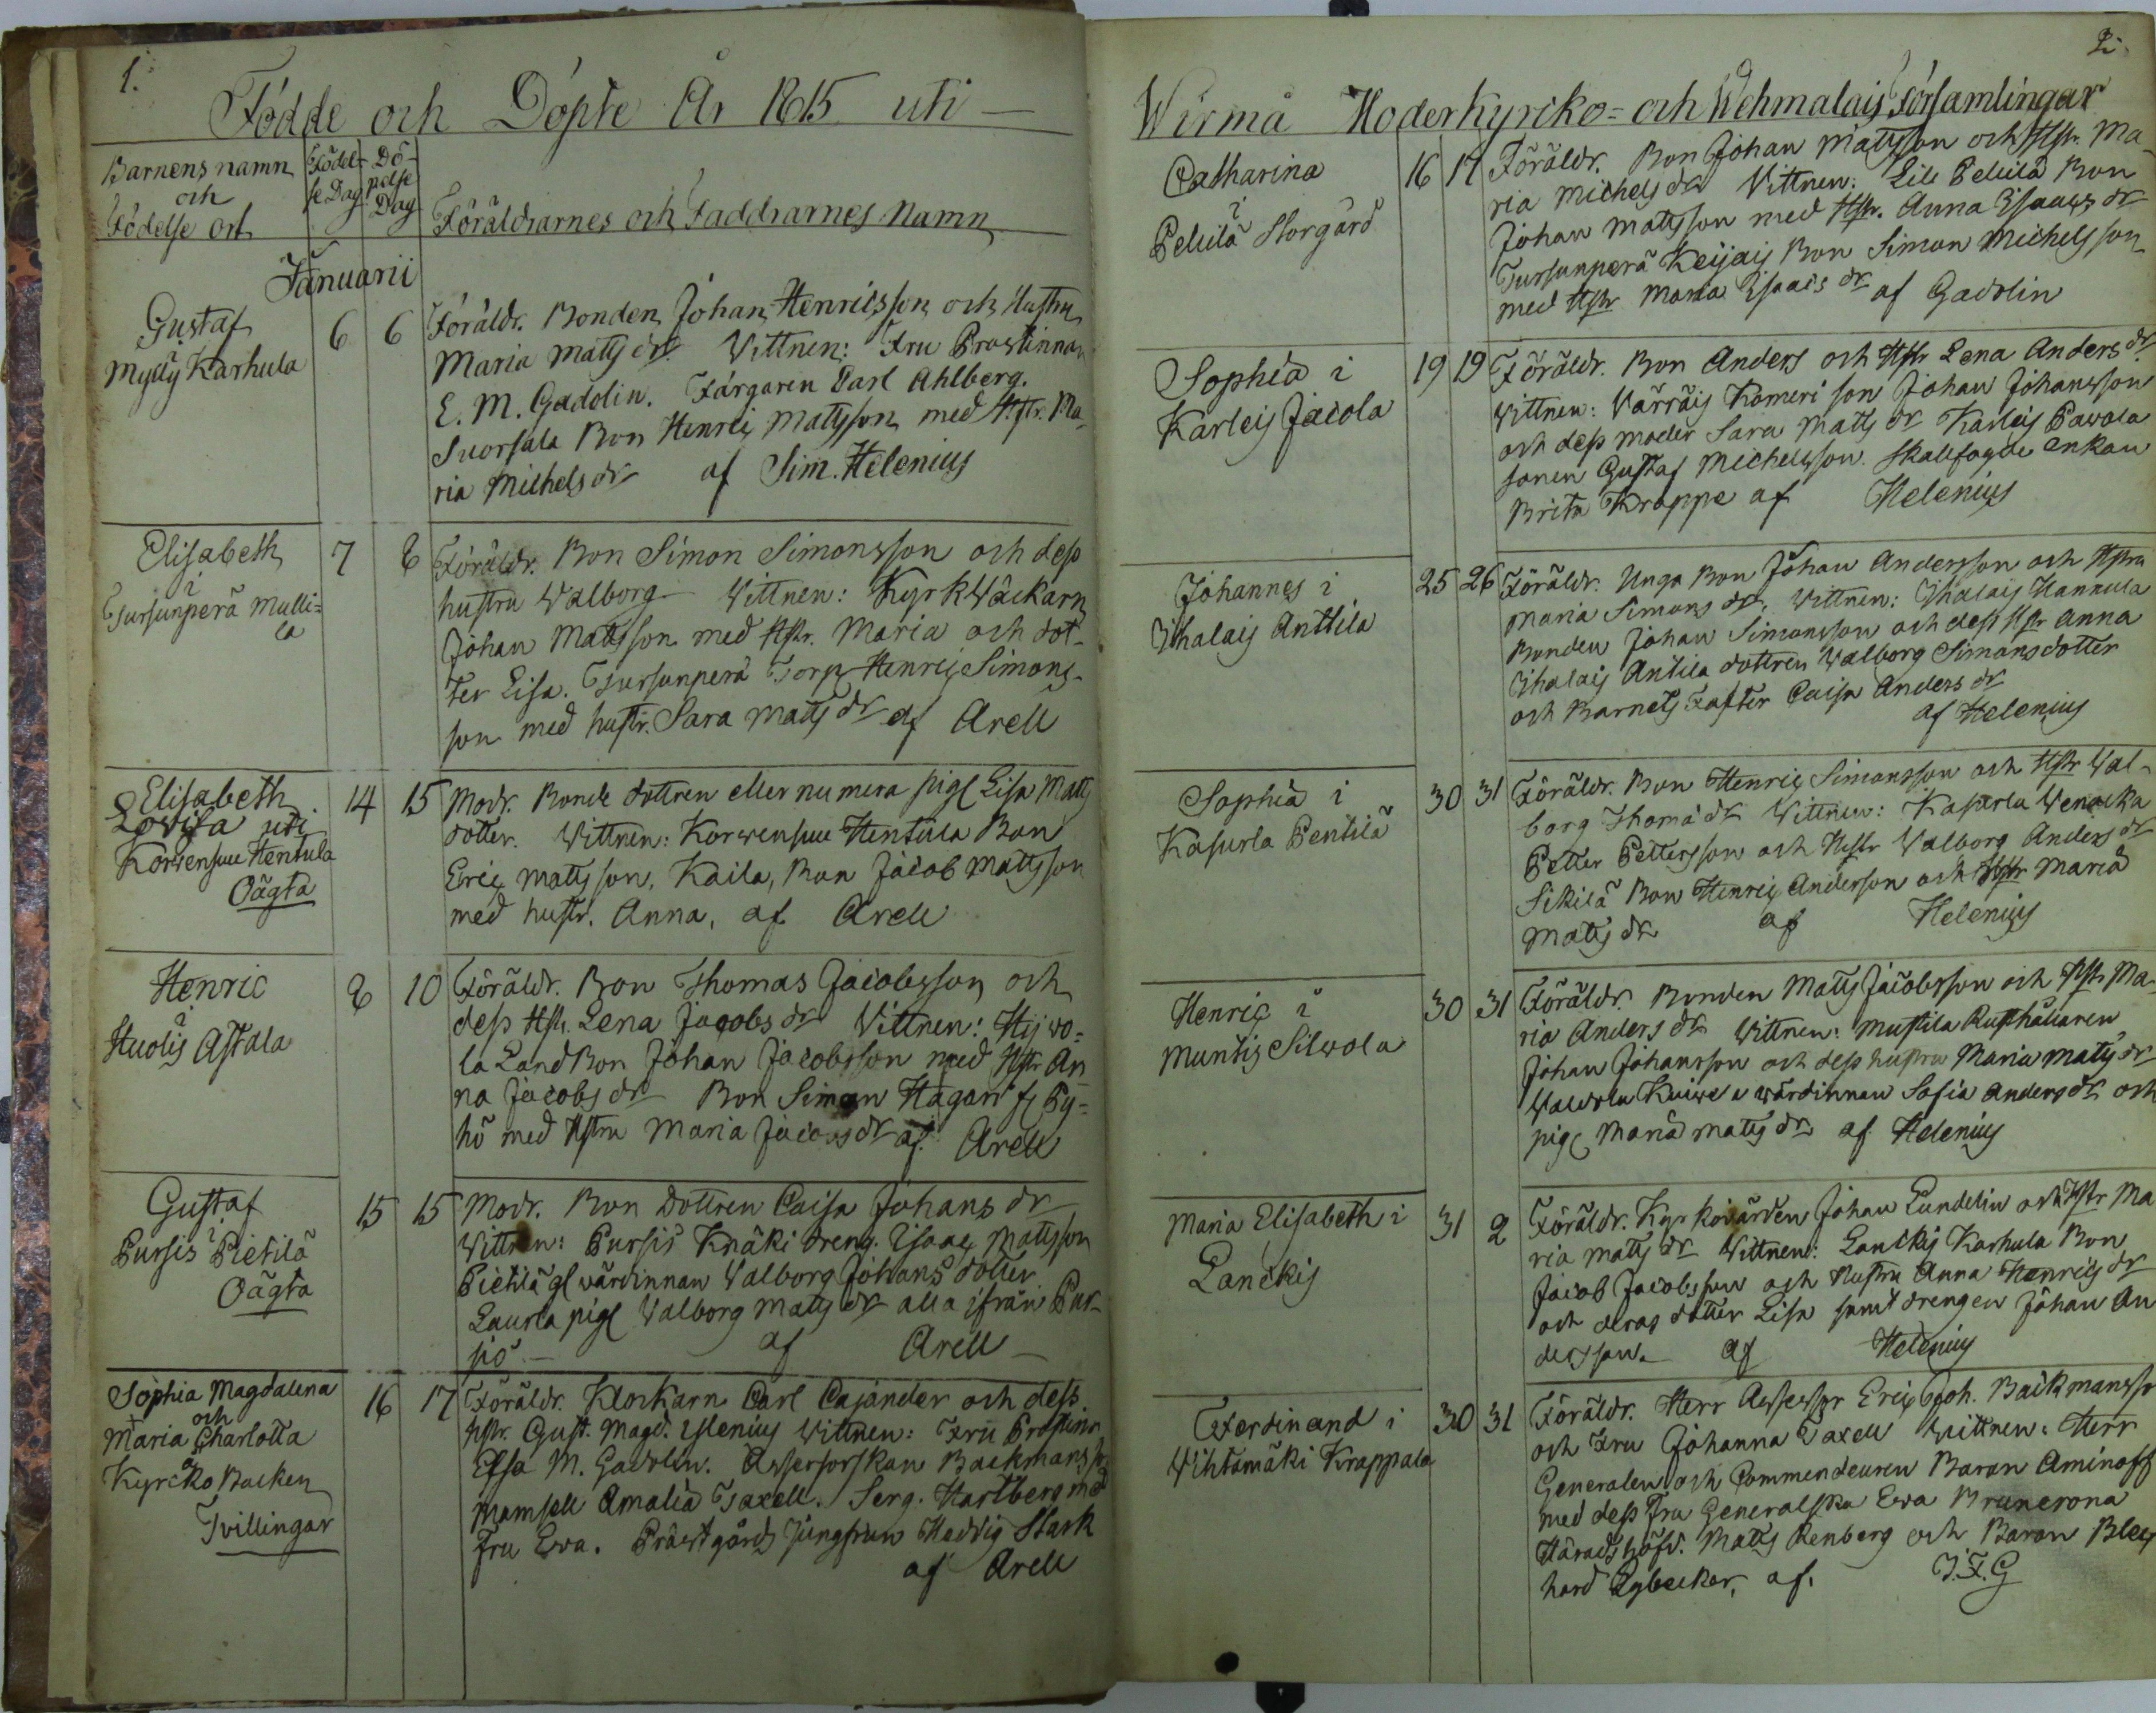 1.
Födde och Döpte År 1815 uti —
Barnens namn
och
Födelse Ort
Födel-
se Dag
Dö-
pelse
Dag
Föräldrarnes och Faddrarnes Namn
Januarii
Gustaf
Mylly Karhula
6 6
Föräldr. Bonden Johan Henricsson och Hustru
Maria Matts dr Vittnen: Fru Prostinnan
E. M. Gadolin. Färgaren Carl Ahlberg.
Suorsala Bon Henric Mattsson med Hstr. Ma-
ria Michels dr af Sim. Helenius
Elisabeth
i
Tursunperä Mulli=
la
7 8
Föräldr. Bon Simon Simonsson och dess
hustru Walborg Vittnen: Kyrkwäckarn
Johan Mattsson med Hstr. Maria och dot-
ter Lisa. Tursunperä Torp Henric Simons-
son med hustr. Sara Matts dr af Arell
Elisabeth
Lovisa uti
Korvensuu Hentula
Oägta
14 15
Modr. Bonde dottren eller numera pig Lisa Matts
dotter. Vittnen: Korwensuu Hentula Bon
Eric Mattsson, Kaila, Bon Jacob Mattsson
med hustr. Anna, af Arell
Henric
i
Huolis Astala
8 10
Föräldr. Bon Thomas Jacobsson och
dess Hstr. Lena Jacobs dr Vittnen: Hijwo=
la Land Bon Johan Jacobsson med Hstr An
na Jacobs dr Bon Simon Hagan fr Py=
hö med Hstru Maria Jacobs dr af. Arell
Gustaf
i
Pursis Pietilä
Oägta
15 15
Modr. Bon dottren Caisa Johans dr
Vittnen: Pursis Knäki dreng. Isaac Mattsson
Pietilä gl wärdinnan Valborg Johans dotter
Laurla pig Valborg Matts dr alla ifrån Pur-
sio — af Arell —
Sophia Magdalena
och
+
Maria Charlotta
å
Kyrcko Backen
Tvillingar
16 17
Föräldr. Klockarn Carl Cajander och dess
hstr. Gust. Magd. Helenius Vittnen: Fru Prostinn
Elsa M. Gadolin. Assessorskan Backmansson
Mamsell Amalia Taxell. Serg. Hartberg med
Fru Eva. Prästgårds Jungfrun Hedvig Stark
af Arell
2.
Wirmå Moderkyrcko= och Wehmalais Församlingar
Catharina
i
Pelkilä Storgård
16 17
Föräldr. Bon Johan Mattsson och Hstr. Ma-
ria Michels dr Vittnen: Lill Pelkilä Bon
Johan Mattsson med Hstr. Anna Isaacs dr
Tursunperä Keijais Bon Simon Michelsson
med Hstr Maria Isaacs dr af Gadolin
Sophia i
Karleis Jacola
19 19
Föräldr. Bon Anders och Hstr Lena Anders dr.
Vittnen: Värräis Komeri son Johan Johansson
och dess moder Sara Matts dr Karleis Pawola
sonen Gustaf Michelsson. Skallfogde Enkan
Brita Krappe af Helenius
Johannes i
Ihalais Anttila
25 26
Föräldr. Unga Bon Johan Andersson och Hstru
Maria Simons dr, Vittnen: Ihalais Hannula
Bonden Johan Simonsson och dess Hstr Anna
Ihalais Antila dottren Walborg Simonsdotter
och Barnets Faster Caisa Anders dr
af Helenius
Sophia i
Kasurla Pentilä
30 31
Föräldr. Bon Henric Simonsson och Hstr Val-
borg Thoma dr Vittnen: Kasurla Wenäkä
Petter Pettersson och Hstr Valborg Anders dr
Sikilä Bon Henric Andersson och Hstr Maria
Matts dr af Helenius
Henric i
Muntis Silwola
30 31
Föräldr. Bonden Matts Jacobsson och Hstr Ma-
ria Anders dr Vittnen: Mustila Rusthållaren
Johan Johansson och dess hustru Maria Matts dr
wärdinnan Sofia Anders dr och
pig Maria Matts dr af Helenius
Maria Elisabeth i
Lanckis
31 2
Föräldr. Kyrkovärden Johan Lundelin och Hstr Ma
ria Matts dr Vittnen: Lanckis Karhula Bon
Jacob Jacobsson och Hustru Anna Henrics dr
och deras dotter Lisa samt drengen Johan An
dersson. af Helenius
Ferdinand i
Wihtamäki Krappala
30 31
Föräldr. Herr Assessor Eric Joh. Backmansson
och Fru Johanna Taxell Vittnen: Herr
Generalen och Commendeuren Baron Aminoff
med dess Fru Generalska Eva Bruncrona
Häradshöfd. Matts Renberg och Baron
hard Rybecker, af. J. F. G